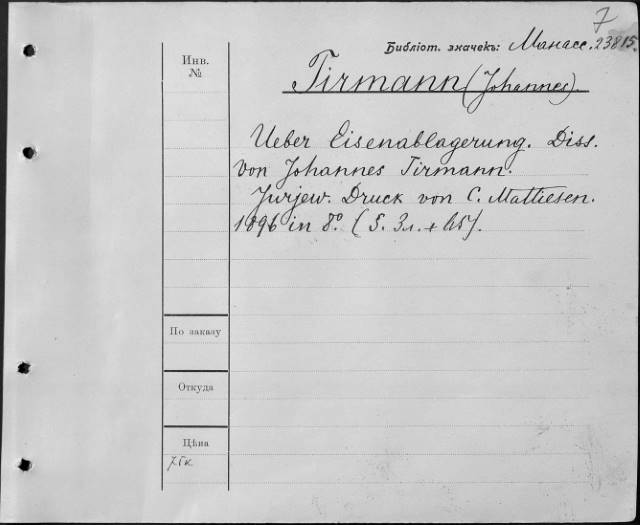 7
Библіот. значекъ: Манасс. 23815.
Инв.
№
Tirmann (Johannes).
Ueber Eisenablagerung. Diss.
von Johannes Tirmann.
Jurjew. Druck von C. Mattiesen.
1896 in 8°. (S. 3л. +
По заказу
Откуда
Цѣна
75к